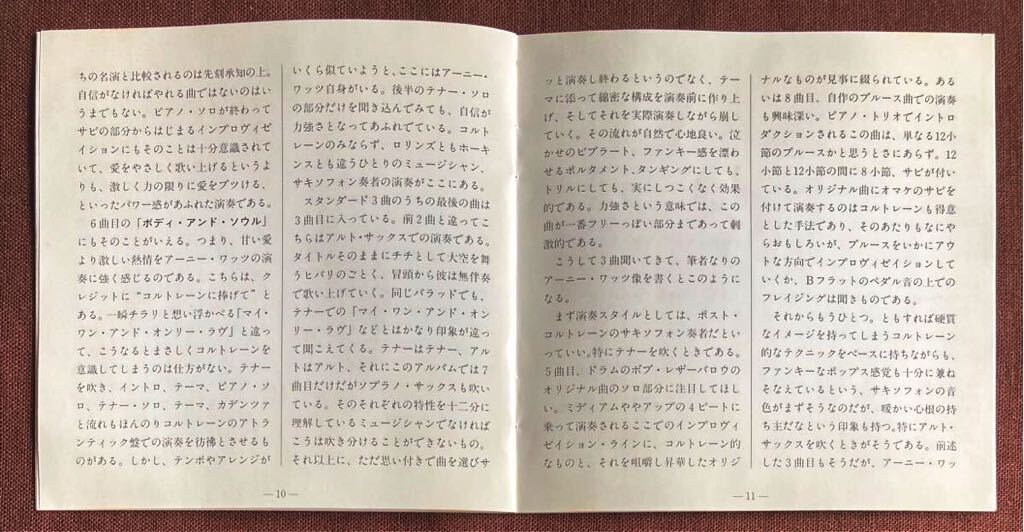 ちの名演と比較されるのは先刻承知の上。
自信がなければやれる曲ではないのはい
うまでもない。ピアノ・ソロが終わって
サビの部分からはじまるインプロヴィゼ
イションにもそのことは十分意識されて
いて、愛をやさしく歌い上げるというよ
りも、激しく力の限りに愛をブツける、
といったパワー感があふれた演奏である。
6曲目の「ボディ・アンド・ソウル」
にもそのことがいえる。つまり、甘い愛
より激しい熱情をアーニー・ワッツの演
奏に強く感じるのである。こちらは、ク
レジットに“コルトレーンに捧げて”と
ある。一瞬チラリと想い浮かべる「マイ・
ワン・アンド・オンリー・ラヴ」と違っ
て、こうなるとまさしくコルトレーンを
意識してしまうのは仕方がない。テナー
を吹き、イントロ、テーマ、ピアノ・ソ
ロ、テナー・ソロ、テーマ、カデンツァ
と流れもほんのりコルトレーンのアトラ
ンティック盤での演奏を彷彿とさせるも
のがある。しかし、テンポやアレンジが
いくら似ていようと、ここにはアーニー・
ワッツ自身がいる。後半のテナー・ソロ
の部分だけを聞き込んでみても、自信が
力強さとなってあふれでている。コルト
レーンのみならず、ロリンズともホーキ
ンスとも違うひとりのミュージシャン、
サキソフォン奏者の演奏がここにある。
スタンダード3曲のうちの最後の曲は
3曲目に入っている。前2曲と違ってこ
ちらはアルト・サックスでの演奏である。
タイトルそのままにチチとして大空を舞
うヒバリのごとく、冒頭から彼は無伴奏
で歌い上げていく。同じバラッドでも、
テナーでの「マイ・ワン・アンド・オン
リー・ラヴ」などとはかなり印象が違っ
て聞こえてくる。テナーはテナー、アル
トはアルト、それにこのアルバムでは7
曲目だけだがソプラノ・サックスも吹い
ている。そのそれぞれの特性を十二分に
理解しているミュージシャンでなければ
こうは吹き分けることができないもの。
それ以上に、ただ思い付きで曲を選びサ
—10—
ッと演奏し終わるというのでなく、テー
マに添って綿密な構成を演奏前に作り上
げ、そしてそれを実際演奏しながら崩し
ていく。その流れが自然で心地良い。泣
かせのビブラート、ファンキー感を漂わ
せるポルタメント、タンギングにしても、
トリルにしても、実にしつこくなく効果
的である。力強さという意味では、この
曲が一番フリーっぽい部分まであって刺
激的である。
こうして3曲聞いてきて、筆者なりの
アーニー・ワッツ像を書くとこのように
なる。
まず演奏スタイルとしては、ポスト・
コルトレーンのサキソフォン奏者だとい
っていい。特にテナーを吹くときである。
5曲目、ドラムのボブ・レザーバロウの
オリジナル曲のソロ部分に注目してほし
い。ミディアムややアップの4ビートに
乗って演奏されるここでのインプロヴィ
ゼイション・ラインに、コルトレーン的
なものと、それを咀嚼し昇華したオリジ
ナルなものが見事に綴られている。ある
いは8曲目、自作のブルース曲での演奏
も興味深い。ピアノ・トリオでイントロ
ダクションされるこの曲は、単なる12小
節のブルースかと思うとさにあらず。12
小節と12小節の間に8小節、サビが付い
ている。オリジナル曲にオマケのサビを
付けて演奏するのはコルトレーンも得意
とした手法であり、そのあたりもなにや
らおもしろいが、ブルースをいかにアウ
トな方向でインプロヴィゼイションして
いくか、Bフラットのペダル音の上での
フレイジングは聞きものである。
それからもうひとつ。ともすれば硬質
なイメージを持ってしまうコルトレーン
的なテクニックをベースに持ちながらも、
ファンキーなポップス感覚も十分に兼ね
そなえているという、サキソフォンの音
色がまずそうなのだが、暖かい心根の持
ち主だなという印象も持つ。特にアルト・
サックスを吹くときがそうである。前述
した3曲目もそうだが、アーニー・ワッ
—11—